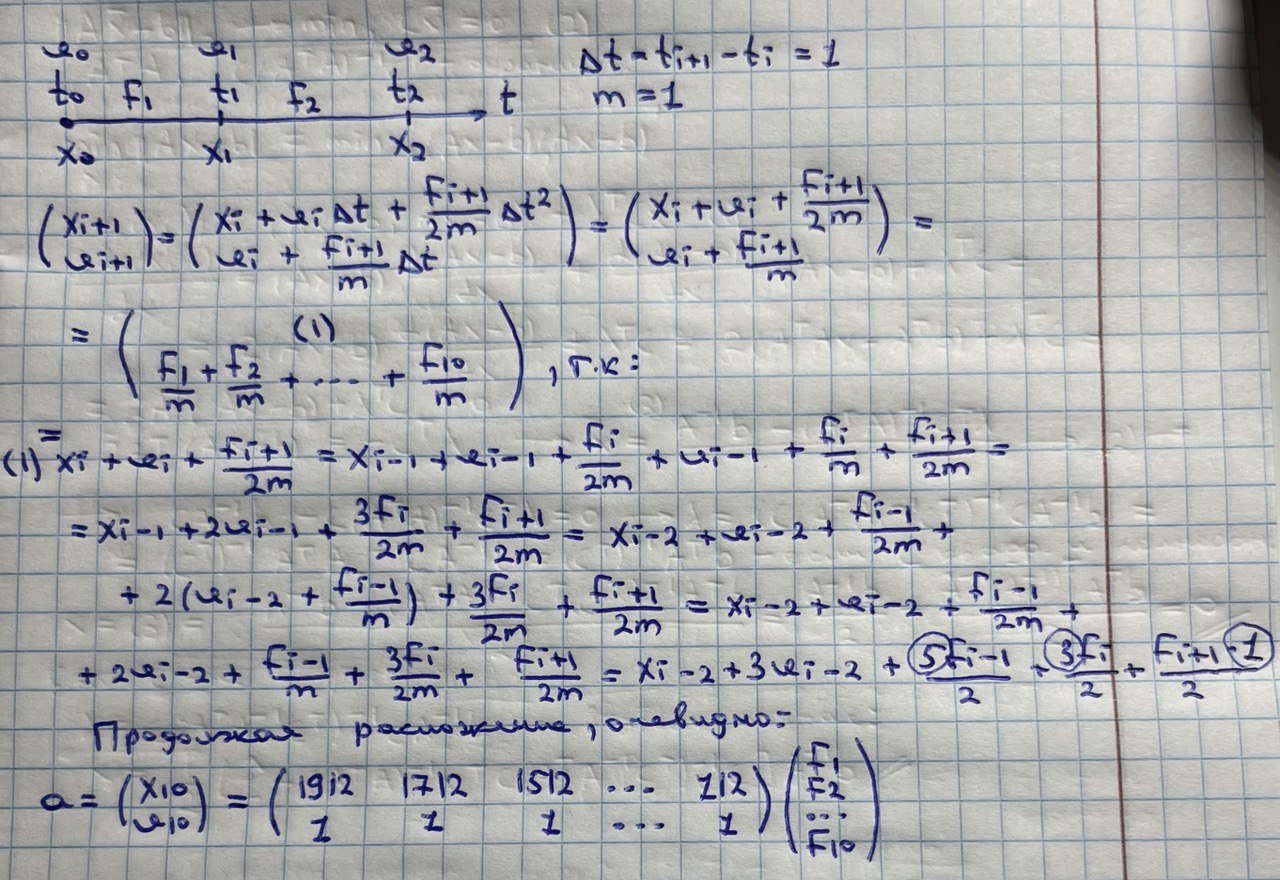 υ₀ υ₁ υ₂ Δt = tᵢ₊₁ - tᵢ = 1
t₀ f₁ t₁ f₂ t₂ t m = 1
x₀ x₁ x₂
(xᵢ₊₁ υᵢ₊₁) = (xᵢ + υᵢ Δt + fᵢ₊₁/2m Δt² υᵢ + fᵢ₊₁/m Δt) = (xᵢ + υᵢ + fᵢ₊₁/2m υᵢ + fᵢ₊₁/m) =
= ((1) f₁/m + f₂/m + .... + f₁₀/m), т.к:
(1) = xᵢ + υᵢ + fᵢ₊₁/2m = xᵢ₋₁ + υᵢ₋₁ + fᵢ/2m + υᵢ₋₁ + fᵢ/m + fᵢ₊₁/2m =
= xᵢ₋₁ + 2υᵢ₋₁ + 3fᵢ/2m + fᵢ₊₁/2m = xᵢ₋₂ + υᵢ₋₂ + fᵢ₋₁/2m +
+ 2(υᵢ₋₂ + fᵢ₋₁/m) + 3fᵢ/2m + fᵢ₊₁/2m = xᵢ₋₂ + υᵢ₋₂ + fᵢ₋₁/2m +
+ 2υᵢ₋₂ + fᵢ₋₁/m + 3fᵢ/2m + fᵢ₊₁/2m = xᵢ₋₂ + 3υᵢ₋₂ + 5fᵢ₋₁/2 + 3fᵢ/2 + fᵢ₊₁·1/2
Продолжая разложение, очевидно:
a = (x₁₀ υ₁₀) = (19/2 17/2 15/2 ... 1/2 1 1 1 ... 1) (f₁ f₂ ... f₁₀)